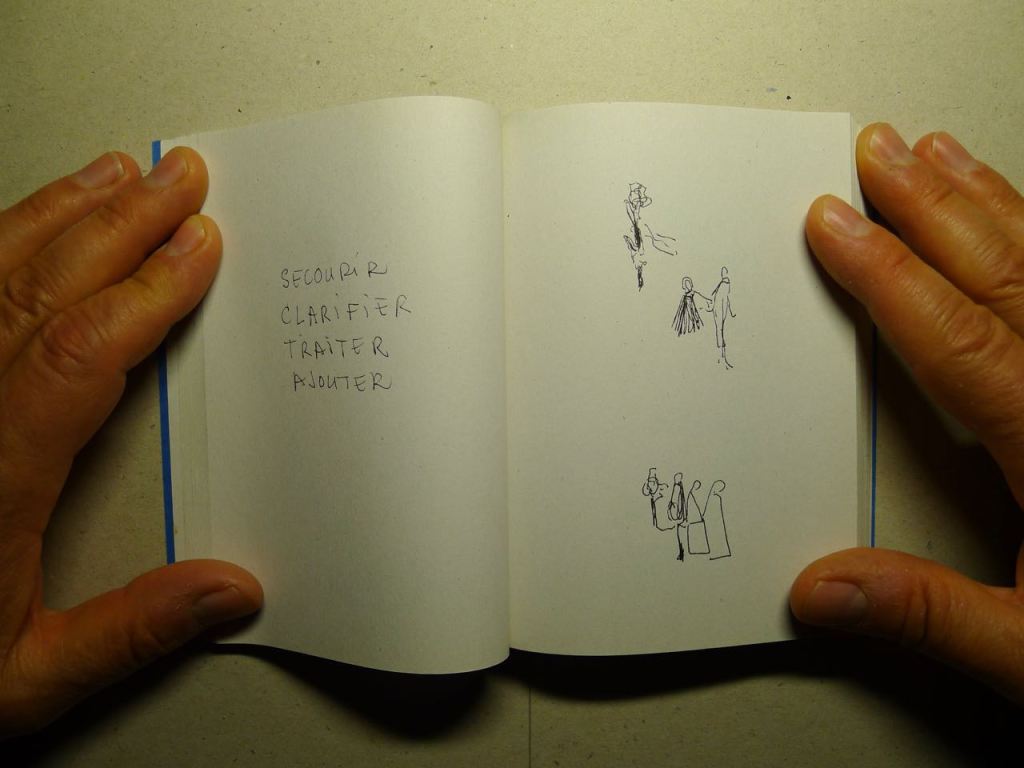 SECOURIR
CLARIFIER
TRAITER
AJOUTER